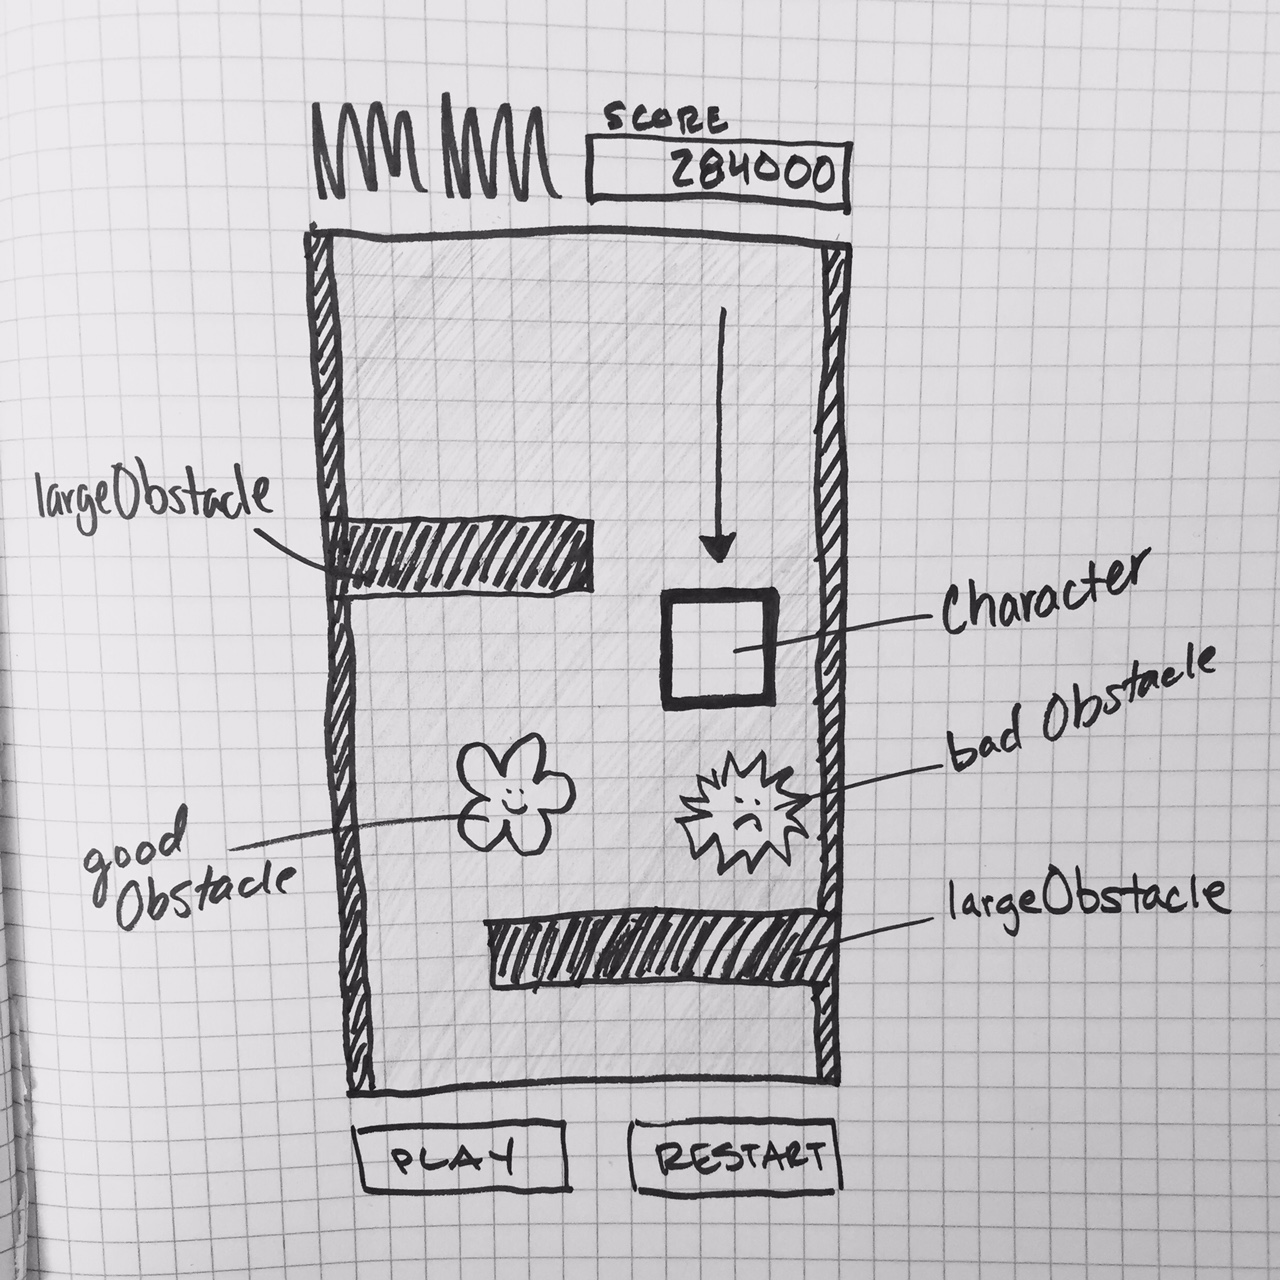 SCORE
284000
largeObstacle
Character
bad Obstacle
good
Obstacle
largeObstacle
PLAY
RESTART